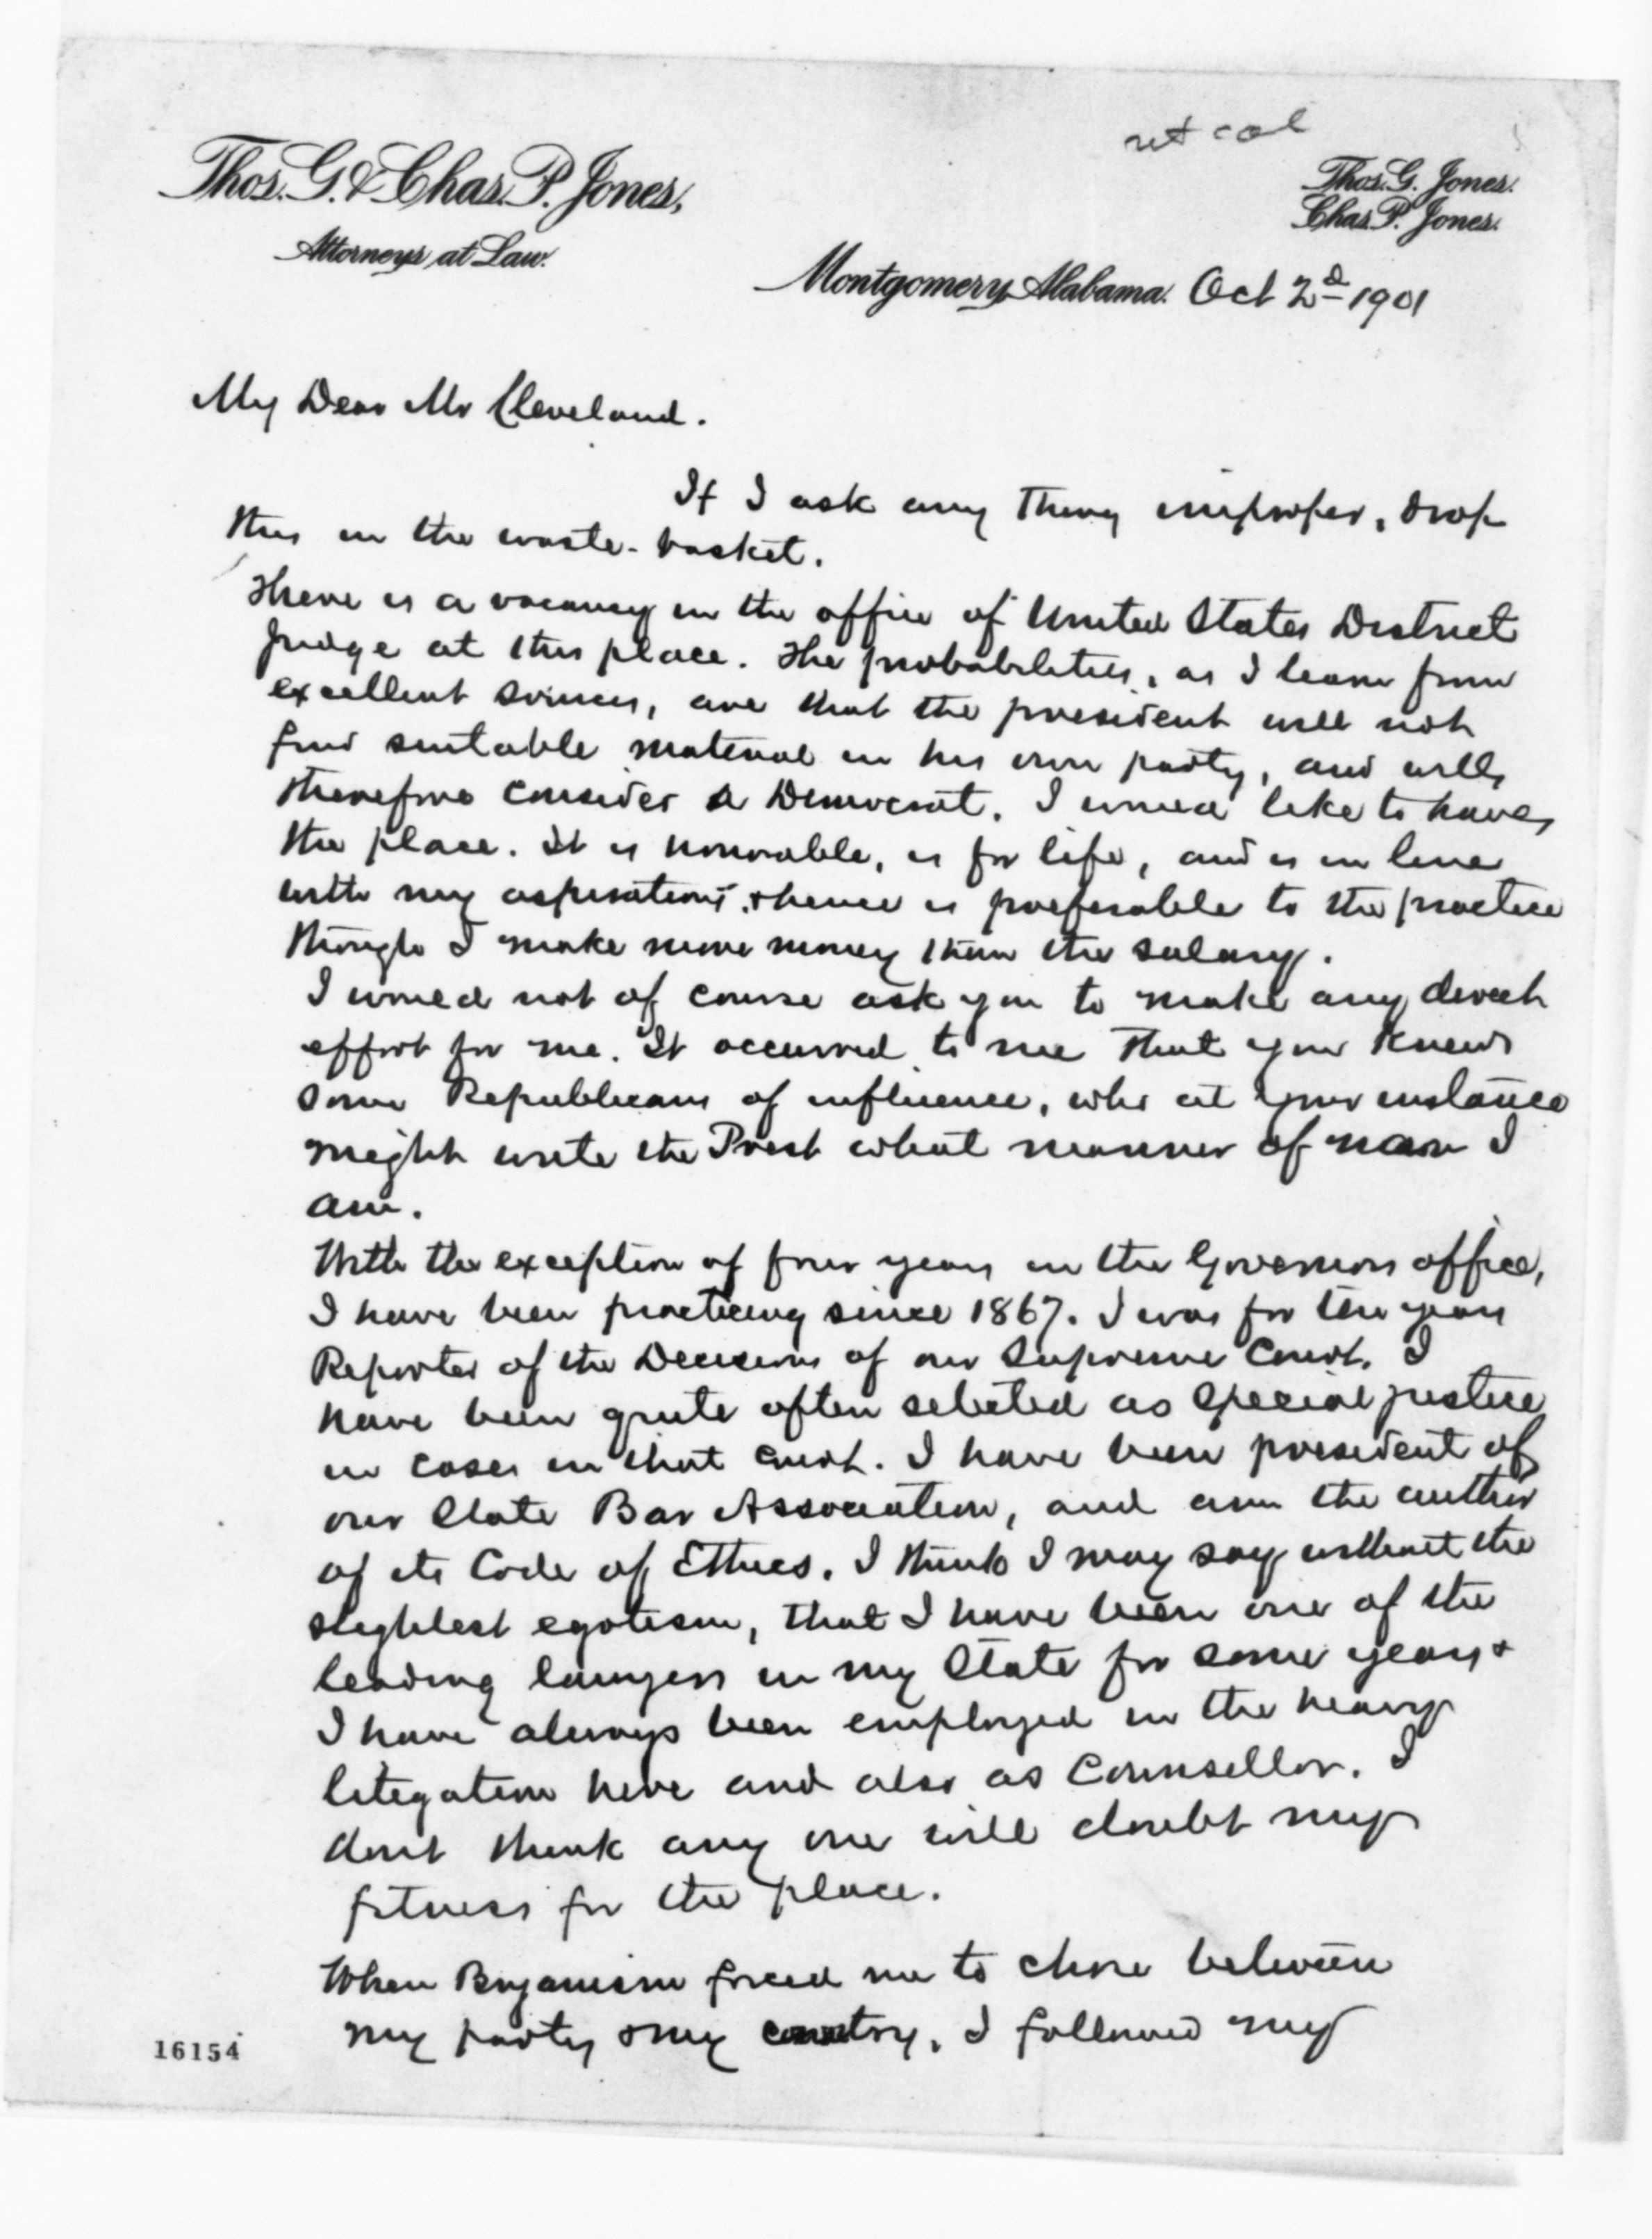 Thos. G. & Chas. P. Jones,
Attorneys at Law.
Thos. G. Jones.
Chas. P. Jones.
Montgomery, Alabama. Oct 2d 1901
My Dear Mr Cleveland.
If I ask any thing improper, drop
this in the waste-basket.
There is a vacancy in the office of United States District
Judge at this place. The probabilities, as I learn from
excellent sources, are that the president will not
find suitable material in his own party, and will,
therefore consider a Democrat. I would like to have,
the place. It is honorable, is for life, and is in line
with my aspirations, & hence is preferable to the practice
though I make more money than the salary.
I would not of course ask you to make any direct
effort for me. It occurred to me that you knew
some Republicans of influence, who at your instance
might write the Prest what manner of man I
am.
With the exception of four years in the Governors office,
I have been practicing since 1867. I was for ten years
Reporter of the Decisions of our Supreme Court. I
have been quite often selected as Special justice
in cases in that Court. I have been president of
our State Bar Association, and am the author
of its Code of Ethics. I think I may say without the
slightest egotism, that I have been one of the
leading lawyers in my State for some years &
I have always been employed in the heavy
litigation here and also as Counsellor. I
dont think any one will doubt my
fitness for the place.
When Bryanism forced me to chose between
my party & my country, I followed my
16154